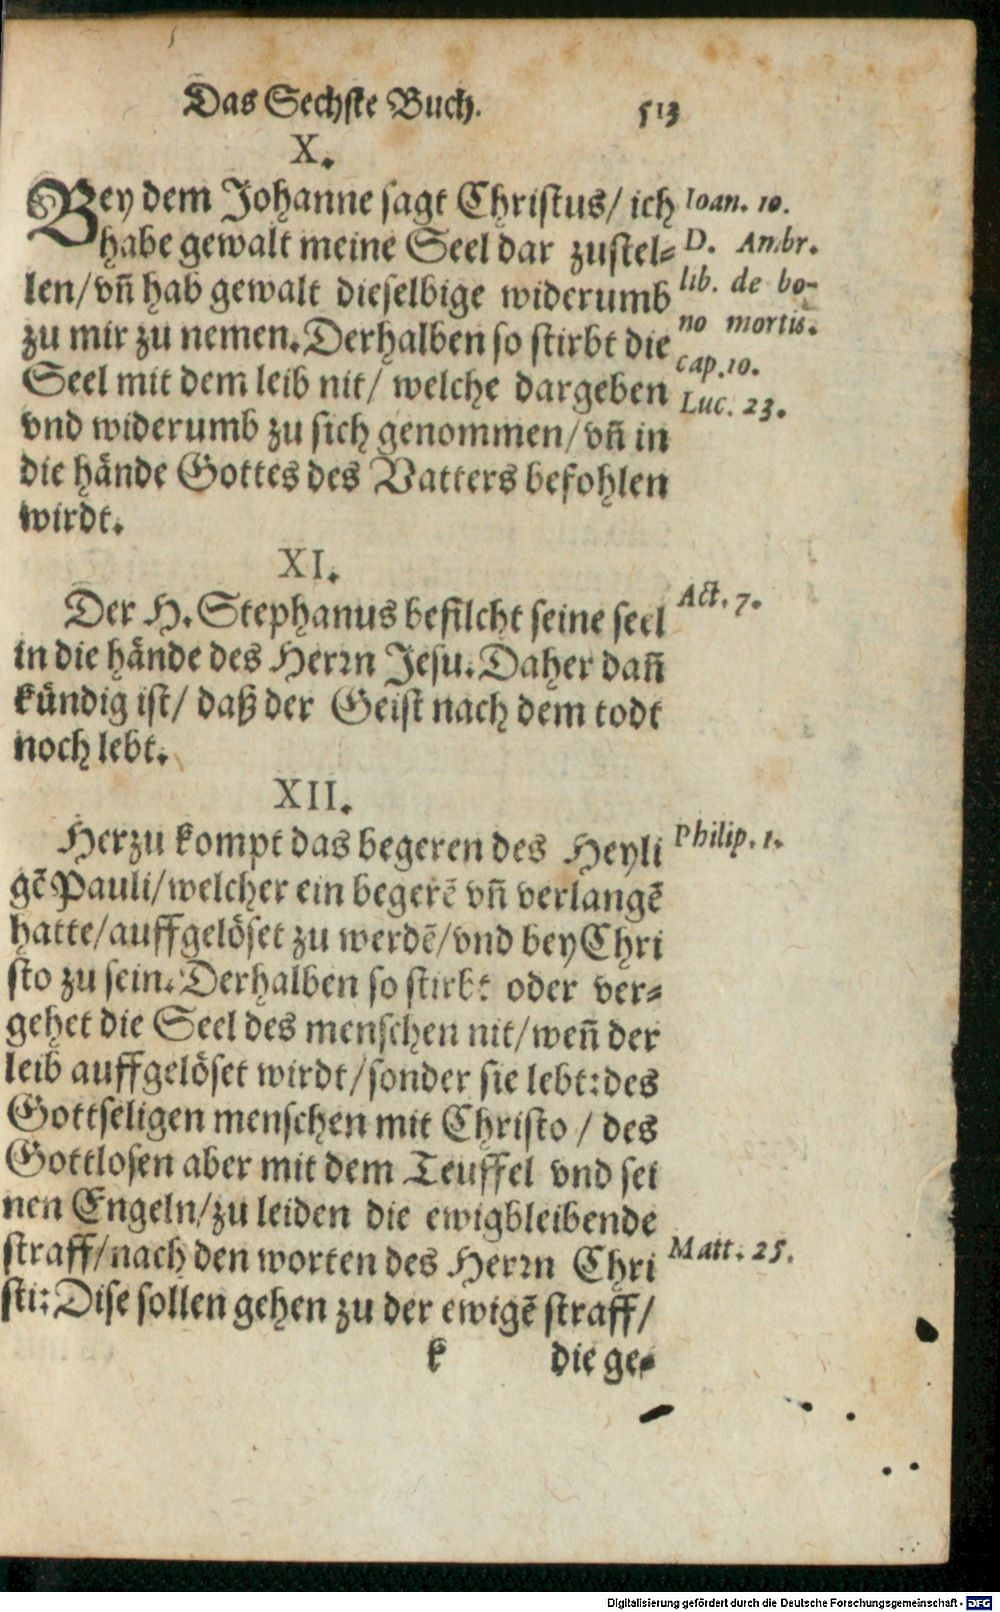 Das Sechste Buch. 513
X.
Bey dem Johanne sagt Christus/ ich
habe gewalt meine Seel dar zustel-
len/ vñ hab gewalt dieselbige widerumb
zu mir zu nemen. Derhalben so stirbt die
Seel mit dem leib nit/ welche dargeben
vnd widerumb zu sich genommen/ vñ in
die hände Gottes des Vatters befohlen
wirdt.
Ioan. 10.
D. Ambr.
lib. de bo-
no mortis.
cap. 10.
Luc. 23.
XI.
Der H. Stephanus befilcht seine seel
in die hände des Herrn Jesu. Daher dañ
kündig ist/ daß der Geist nach dem todt
noch lebt.
Act. 7.
XII.
Herzu kompt das begeren des Heyli
gẽ Pauli/ welcher ein begerẽ vñ verlangẽ
hatte/ auffgelöset zu werdẽ/ vnd bey Chri
sto zu sein. Derhalben so stirbt oder ver-
gehet die Seel des menschen nit/ weñ der
leib auffgelöset wirdt/ sonder sie lebt: des
Gottseligen menschen mit Christo / des
Gottlosen aber mit dem Teuffel vnd sei
nen Engeln/ zu leiden die ewigbleibende
straff/ nach den worten des Herrn Chri
sti: Dise sollen gehen zu der ewigẽ straff/
Philip. 1.
Matt. 25.
k die ge-
Digitalisierung gefördert durch die Deutsche Forschungsgemeinschaft - DFG